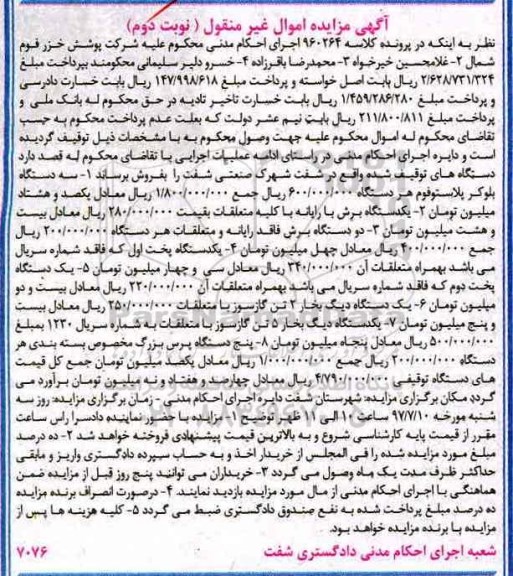 آگهی مزایده اموال غیر منقول ( نوبت دوم)
نظر به اینکه در پرونده کلاسه ۹۶۰۲۶۴ اجرای احکام مدنی محکوم علیه شرکت پوشش خزر فوم
شمال ۲- غلامحسین خیرخواه ۳- محمدرضا باقرزاده ۴- خسرو دلیر سلیمانی محکومند بپرداخت مبلغ
۲/۶۲۸/۷۳۱/۳۲۴ ریال بابت اصل خواسته و پرداخت مبلغ ۱۴۷/۹۹۸/۶۱۸ ریال بابت خسارت دادرسی
و پرداخت مبلغ ۱/۴۵۹/۲۸۶/۲۸۰ ریال بابت خسارت تاخیر تادیه در حق محکوم له بانک ملی و
پرداخت مبلغ ۲۱۱/۸۰۰/۸۱۱ ریال بابت نیم عشر دولت که بعلت عدم پرداخت محکوم به حسب
تقاضای محکوم له اموال محکوم علیه جهت وصول محکوم به با مشخصات ذیل توقیف گردیده
است و دایره اجرای احکام مدنی در راستای ادامه عملیات اجرایی با تقاضای محکوم له قصد دارد
دستگاه های توقیف شده واقع در شفت شهرک صنعتی شفت را بفروش برساند ۱- سه دستگاه
بلوکر پلاستوفوم هر دستگاه ۶۰۰/۰۰۰/۰۰۰ ریال جمع ۱/۸۰۰/۰۰۰/۰۰۰ ریال معادل یکصد و هشتاد
میلیون تومان ۲- یکدستگاه برش با رایانه با کلیه متعلقات بقیمت ۲۸۰/۰۰۰/۰۰۰ ریال معادل بیست
و هشت میلیون تومان ۳- دو دستگاه برش فاقد رایانه و متعلقات هر دستگاه ۲۰۰/۰۰۰/۰۰۰ ریال
جمع ۴۰۰/۰۰۰/۰۰۰ ریال معادل چهل میلیون تومان ۴- یکدستگاه پخت اول که فاقد شماره سریال
می باشد بهمراه متعلقات آن ۳۴۰/۰۰۰/۰۰۰ ریال معادل سی و چهار میلیون تومان ۵- یک دستگاه
پخت دوم که فاقد شماره سریال می باشد بهمراه متعلقات آن ۲۲۰/۰۰۰/۰۰۰ ریال معادل بیست و دو
میلیون تومان ۶- یک دستگاه دیگ بخار ۲ تن گازسوز با متعلقات ۲۵۰/۰۰۰/۰۰۰ ریال معادل بیست
و پنج میلیون تومان ۷- یکدستگاه دیگ بخار ۵ تن گازسوز با متعلقات به شماره سریال ۱۲۳۰ بمبلغ
۵۰۰/۰۰۰/۰۰۰ ریال معادل پنجاه میلیون تومان ۸- پنج دستگاه پرس بزرگ مخصوص بسته بندی هر
دستگاه ۲۰۰/۰۰۰/۰۰۰ ریال جمع ۱/۰۰۰/۰۰۰/۰۰۰ ریال معادل یکصد میلیون تومان جمع کل قیمت
های دستگاه توقیفی ۴/۷۹۰/۰۰۰/۰۰۰ ریال معادل چهارصد و هفتاد و نه میلیون تومان برآورد می
گردد مکان برگزاری مزایده: شهرستان شفت دایره اجرای احکام مدنی - زمان برگزاری مزایده: روز سه
شنبه مورخه ۹۷/۷/۱۰ ساعت ۱۰ الی ۱۱ ظهر توضیح ۱- مزایده با حضور نماینده دادسرا راس ساعت
مقرر از قیمت پایه کارشناسی شروع و به بالاترین قیمت پیشنهادی فروخته خواهد شد ۲- ده درصد
مبلغ مورد مزایده شده را فی المجلس از خریدار اخذ و به حساب سپرده دادگستری واریز و مابقی
حداکثر ظرف مدت یک ماه وصول می گردد ۳- خریداران می توانند پنج روز قبل از مزایده ضمن
هماهنگی با اجرای احکام مدنی از مال مورد مزایده بازدید نمایند. ۴- درصورت انصراف برنده مزایده
ده درصد مبلغ پرداخت شده به نفع صندوق دادگستری ضبط می گردد ۵- کلیه هزینه ها پس از
مزایده با برنده مزایده خواهد بود.
شعبه اجرای احکام مدنی دادگستری شفت ۷۰۷۶